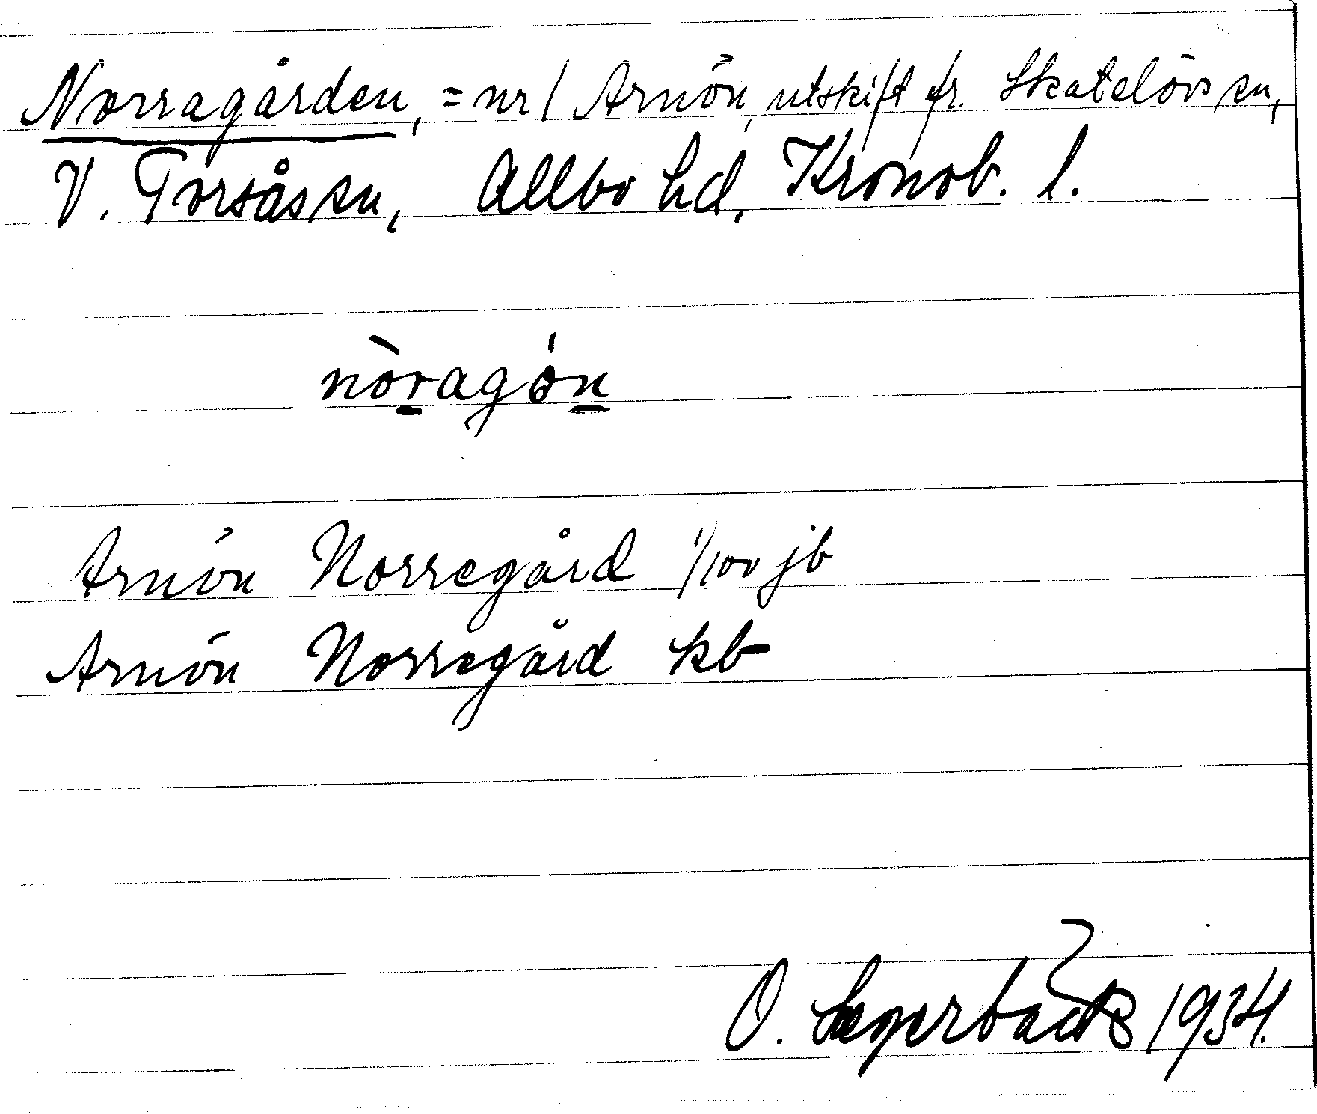 Norragården, = nr 1 Arnön, utskift fr. Skatelövs sn,
V. Torsås sn, Allbo hd, Kronob. l.
nòragón
Arnön Norregård 1/100 jb
Arnön Norregård kb
O. 1934.